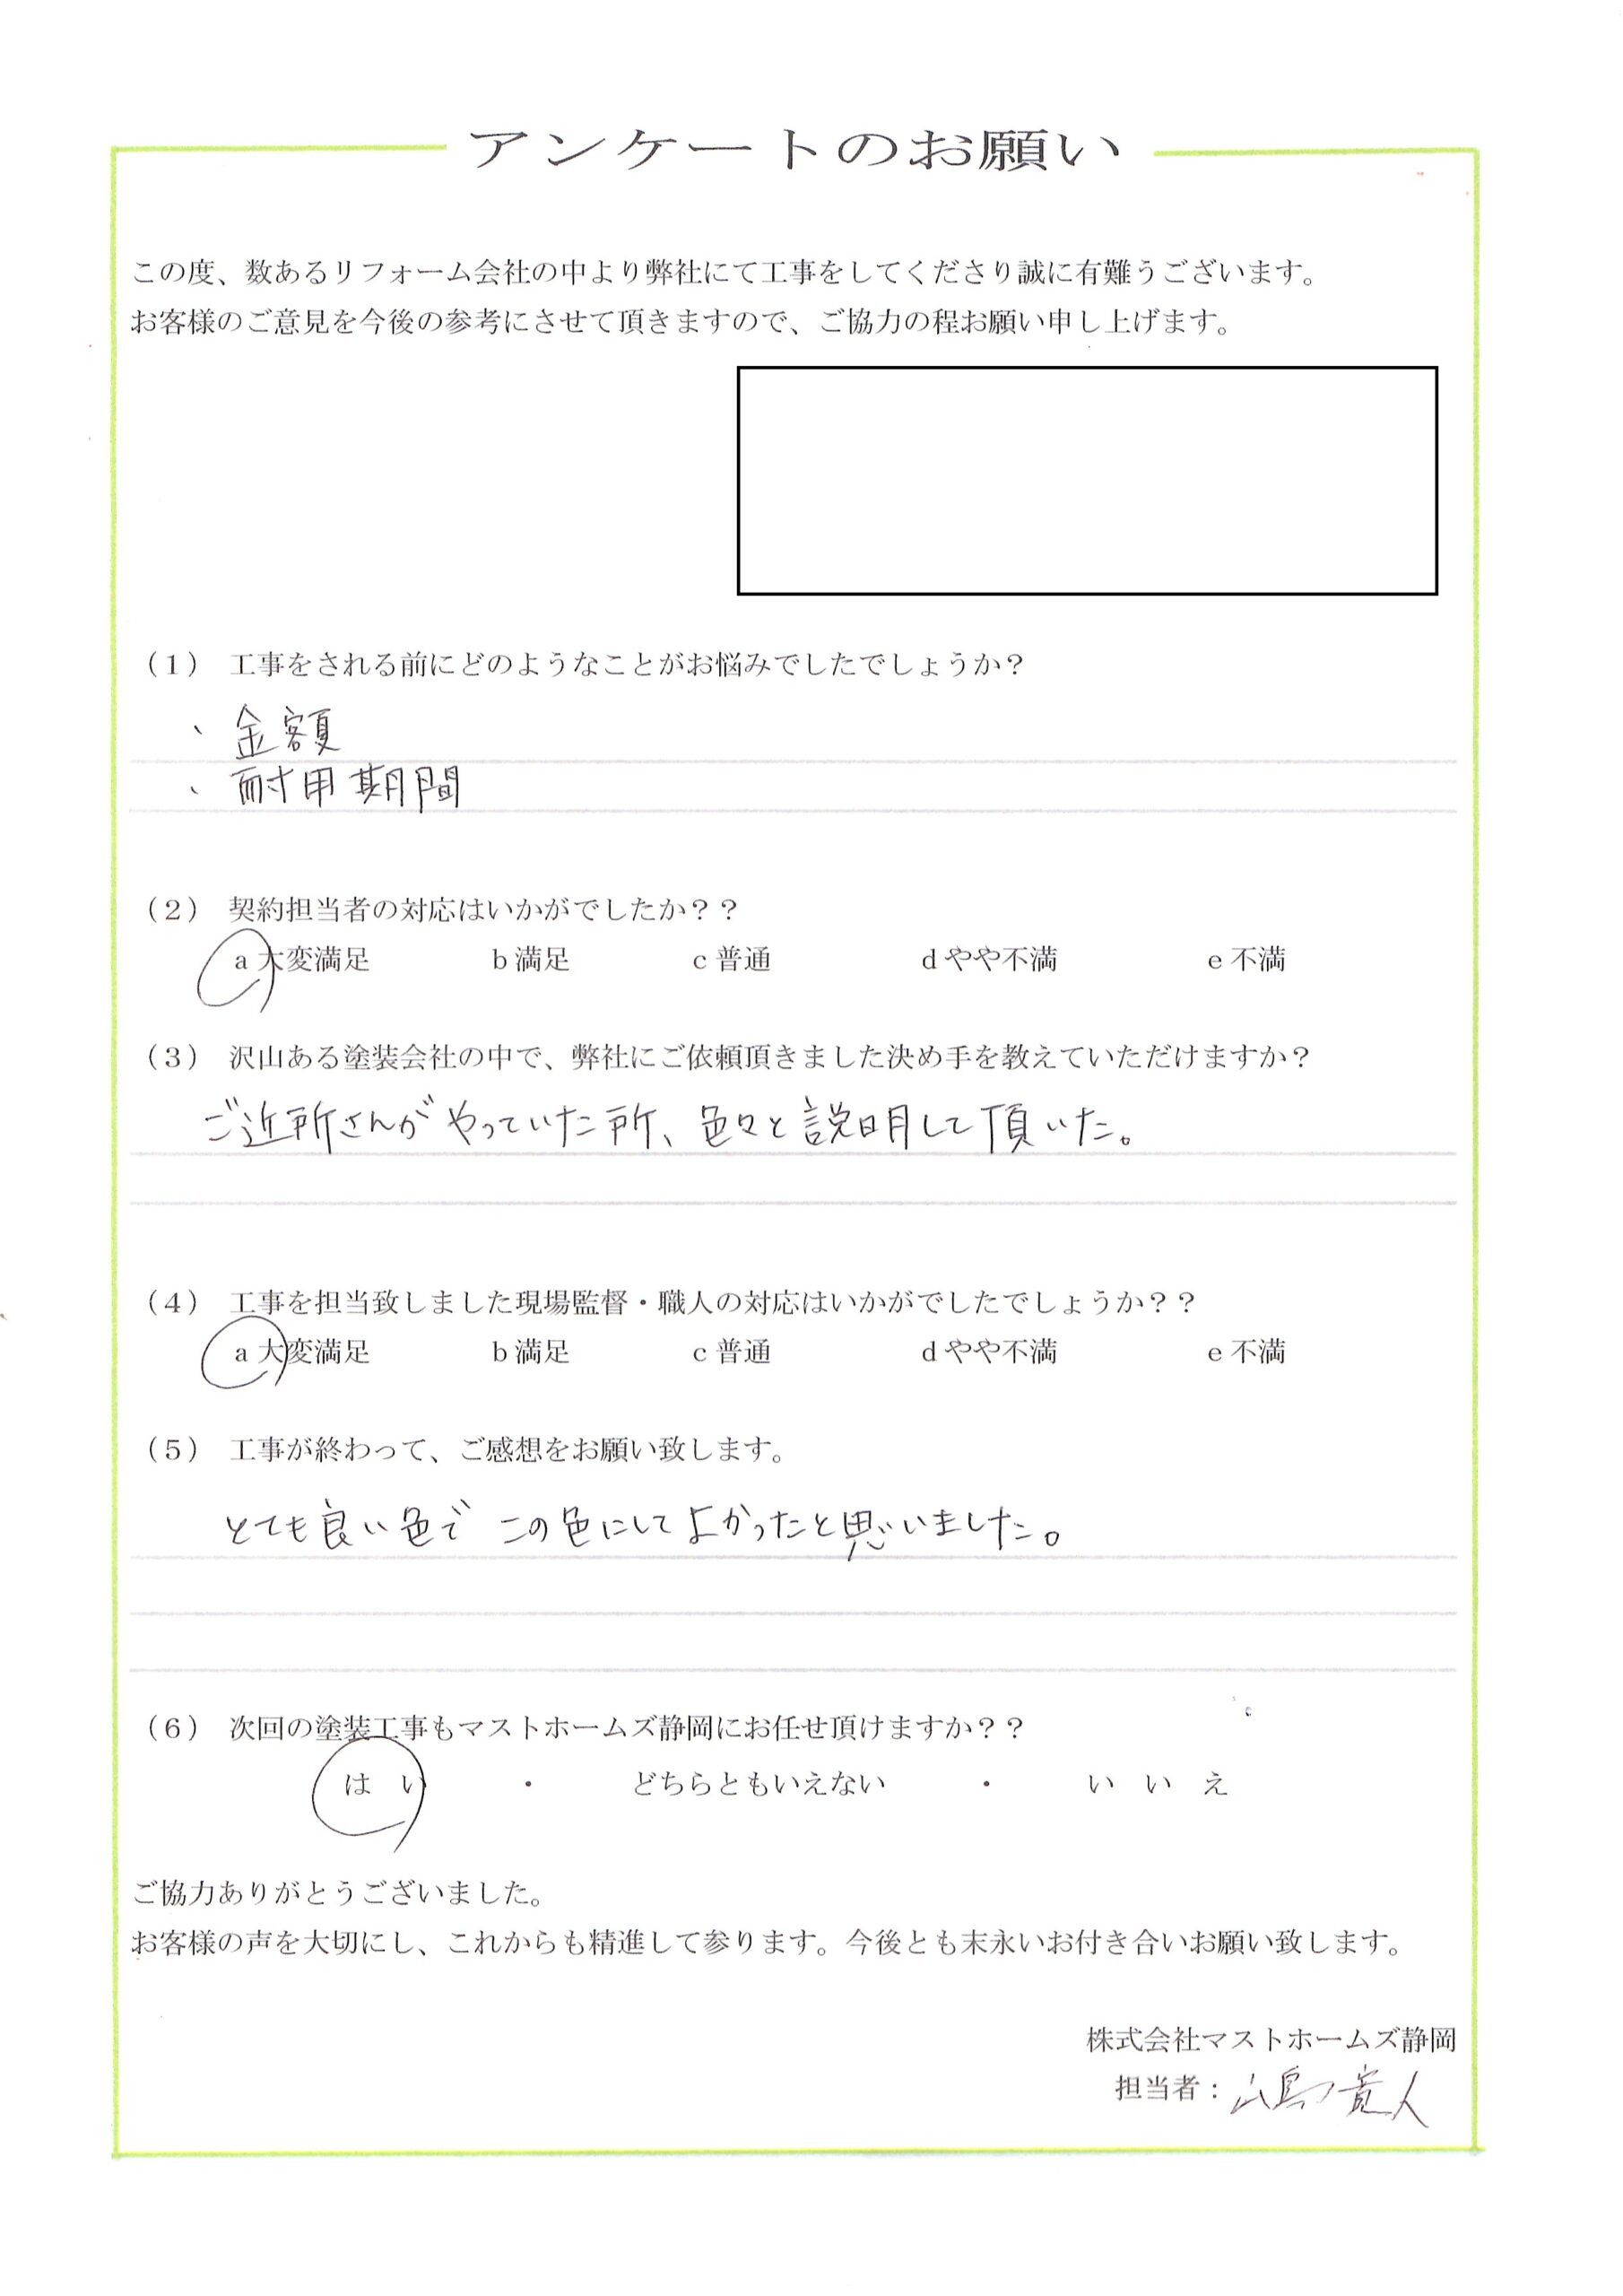 アンケートのお願い
この度、数あるリフォーム会社の中より弊社にて工事をしてくださり誠に有難うございます。
お客様のご意見を今後の参考にさせて頂きますので、ご協力の程お願い申し上げます。
（1） 工事をされる前にどのようなことがお悩みでしたでしょうか？
、金額
、耐用期間
（2） 契約担当者の対応はいかがでしたか？？
a 大変満足 b 満足 c 普通 d やや不満 e 不満
（3） 沢山ある塗装会社の中で、弊社にご依頼頂きました決め手を教えていただけますか？
ご近所さんがやっていた所、色々と説明して頂いた。
（4） 工事を担当致しました現場監督・職人の対応はいかがでしたでしょうか？？
a 大変満足 b 満足 c 普通 d やや不満 e 不満
（5） 工事が終わって、ご感想をお願い致します。
とても良い色で この色にしてよかったと思いました。
（6） 次回の塗装工事もマストホームズ静岡にお任せ頂けますか？？
は い ・ どちらともいえない ・ い い え
ご協力ありがとうございました。
お客様の声を大切にし、これからも精進して参ります。今後とも末永いお付き合いお願い致します。
株式会社マストホームズ静岡
担当者：